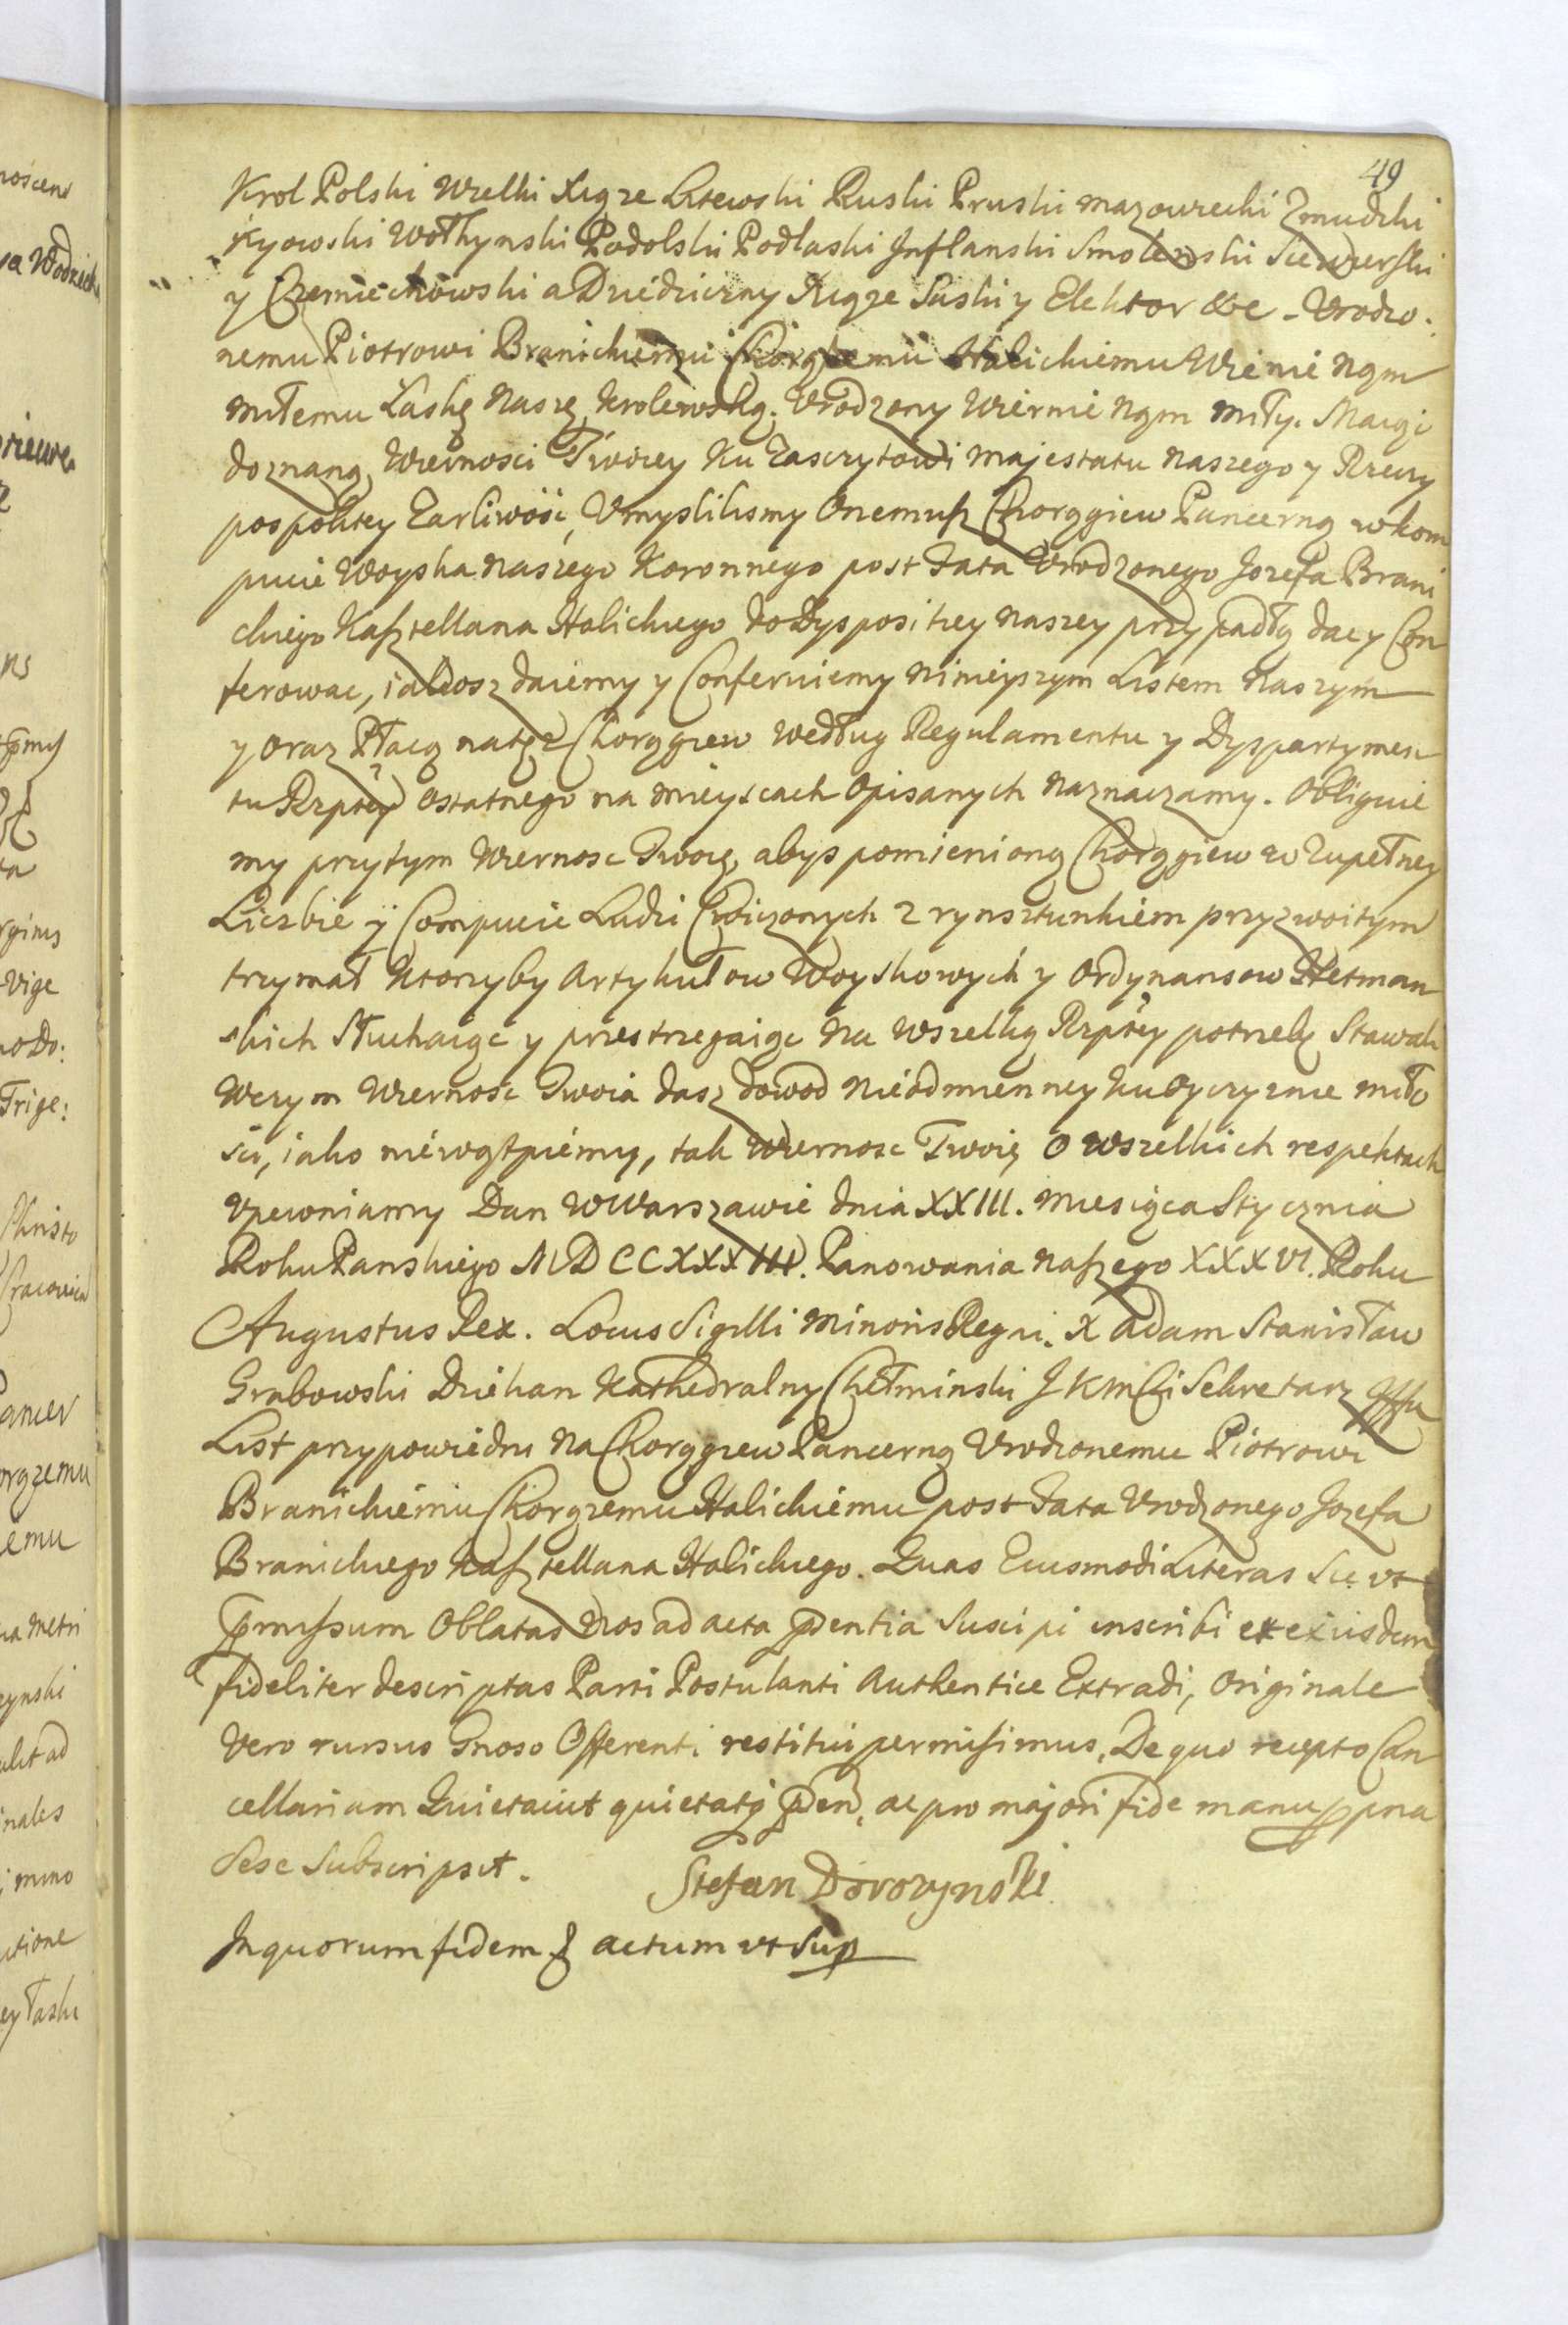 49
Krol Polski Wielki Xiąze Litewski Ruski Pruski mazowiecki Zmudzki
Kyowski Wołhynski Podolski Podlaski Jnflanski Smolenski Siewierski
y Czerniechowski a Dziedziczny Xiąze Saski y Elektor &c - Vrodzo.
nemu Piotrowi Branickiemu Chorązemu Halickiemu Wiernie Nąm
miłemu Łaskę Naszę Krolewską. Vrodzony Wiernie Nąm miły. Maiąc
doznaną Wiernosci Twoiey Ku Zasczytowi Majestatu Naszego y Rzeczy
pospolitey Zarliwość, Vmyslilismy Onemusz Chorągiew Pancerną w kom
pucie Woyska Naszego Koronnego post Fata Vrodzonego Jozefa Brani
ckiego Kasztellana Halickiego do Dyspositiey Naszey przypadłą dac y Con
ferowac, iakosz daiemy y Conferuiemy Ninieyszym Listem Naszym
y oraz Płacą na tęż Chorągiew według Regulamentu y Dyspartymen
tu Rzptey ostatnego na mieyscach Opisanych Naznaczamy. Obliguie
my przytym Wiernosc Twoię, abys pomienioną Chorągiew w Zupełney
Liczbie y Compucie Ludzi Cwiczonych z rynsztunkiem przyzwoitym
trzymał Ktorzyby Artykułow Woyskowych y Ordynansow Hetman
skich Słuchaiąc y przestrzegaiąc Na Wszelką Rzptey potrzebę Stawali
Wczym Wiernosc Twoia dasz dowod Nieodmienney Ku Oyczyznie miło
sci, iako niewątpiemy, tak Wiernosc Twoię O wszelkich respektach
Vpewniamy Dan w Warszawie dnia XXIII. Miesiąca Stycznia
Roku Panskiego MDCCXXXIII. Panowania Naszego XXXVI. Roku
Augustus Rex. Locus Sigilli Minoris Regni. X Adam Stanisław
Grabowski Dziekan Kathedralny Chełminski J K Mci Sekretarz
List przypowiedni Na Chorągiew Pancerną Vrodzonemu Piotrowi
Branickiemu Chorązemu Halickiemu post Fata Vrodzonego Jozefa
Branickiego Kasztellana Halickiego. Quas Eiusmodi Literas Sic vt
pmissum Oblatas Nos ad acta pdentia Suscipi inscribi et exiisdem
fideliter descriptas Parti Postulanti Authentice Extradi, Originale
Vero rursus Gnoso Offerenti restitui permisimus, De quo recepto Can
cellariam Quietauit quietatq pden, ac pro majori fide manu ppria
Sese Subscripsit. Stefan Dorozynski
In quorum fidem & actum vt Sup